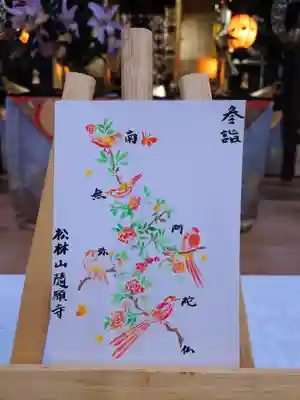 参詣
南
無
阿
弥
陀
仏
松林山随願寺